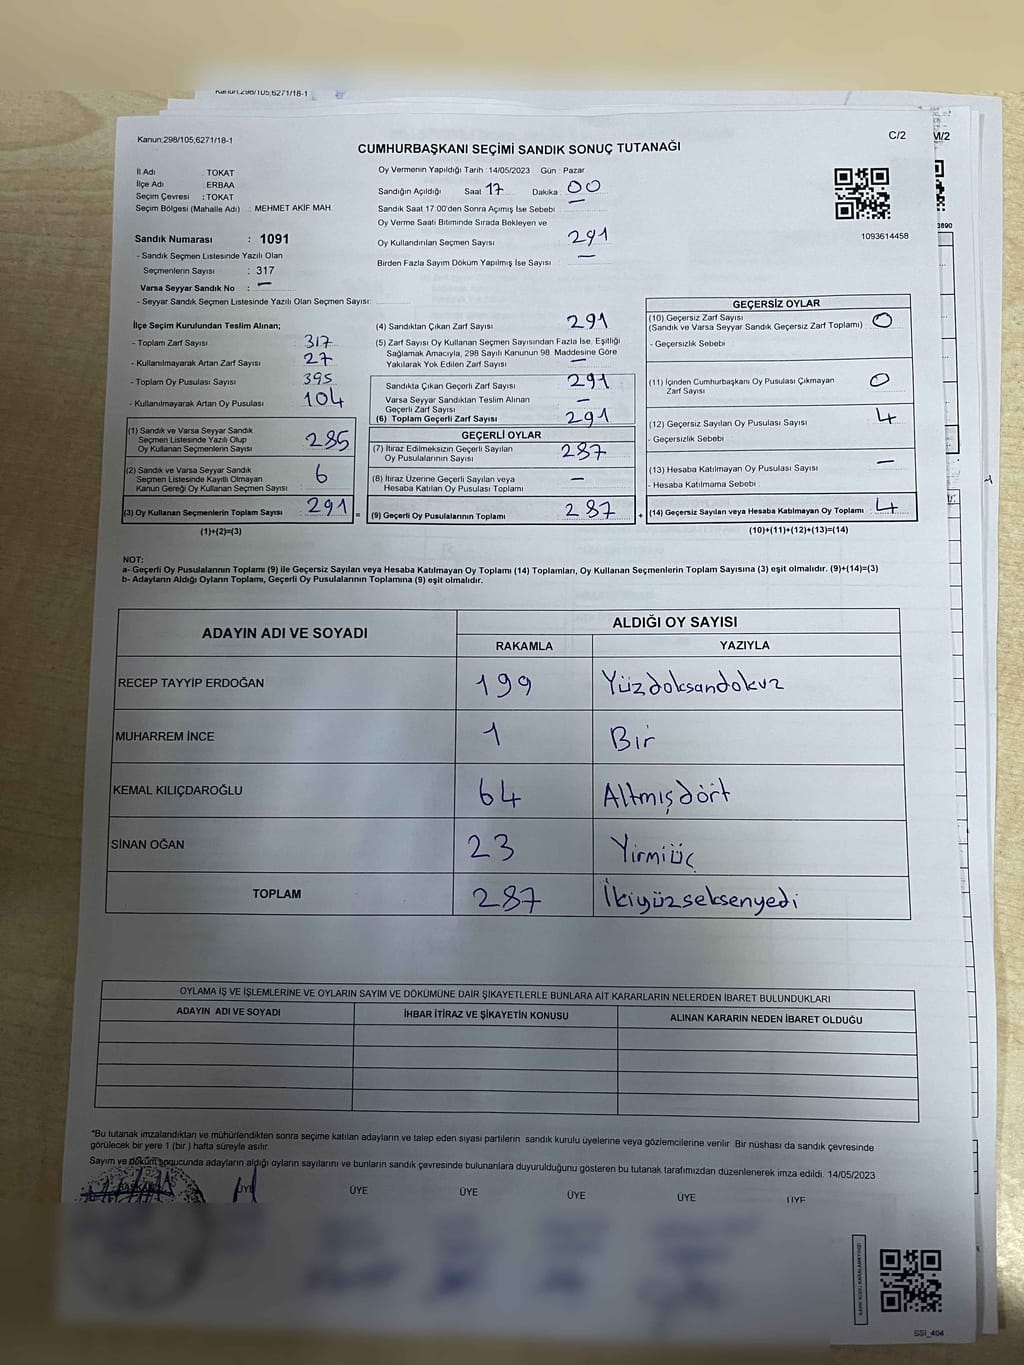 Kanun;298/105;6271/18-1
Kanun;298/105;6271/18-1
C/2
M/2
CUMHURBAŞKANI SEÇİMİ SANDIK SONUÇ TUTANAĞI
İl Adı : TOKAT
İlçe Adı : ERBAA
Seçim Çevresi : TOKAT
Seçim Bölgesi (Mahalle Adı) : MEHMET AKİF MAH.
Sandık Numarası : 1091
- Sandık Seçmen Listesinde Yazılı Olan
Seçmenlerin Sayısı : 317
Varsa Seyyar Sandık No : —
- Seyyar Sandık Seçmen Listesinde Yazılı Olan Seçmen Sayısı:
Oy Vermenin Yapıldığı Tarih : 14/05/2023 Gün : Pazar
Sandığın Açıldığı Saat 17 Dakika 00
Sandık Saat 17.00'den Sonra Açımış İse Sebebi —
Oy Verme Saati Bitiminde Sırada Bekleyen ve
Oy Kullandırılan Seçmen Sayısı 291
Birden Fazla Sayım Döküm Yapılmış İse Sayısı —
1093614458
3890
İlçe Seçim Kurulundan Teslim Alınan;
- Toplam Zarf Sayısı 317
- Kullanılmayarak Artan Zarf Sayısı 27
- Toplam Oy Pusulası Sayısı 395
- Kullanılmayarak Artan Oy Pusulası 104
(1) Sandık ve Varsa Seyyar Sandık
Seçmen Listesinde Yazılı Olup
Oy Kullanan Seçmenlerin Sayısı 285
(2) Sandık ve Varsa Seyyar Sandık
Seçmen Listesinde Kayıtlı Olmayan
Kanun Gereği Oy Kullanan Seçmen Sayısı 6
(3) Oy Kullanan Seçmenlerin Toplam Sayısı 291 =
(1)+(2)=(3)
(4) Sandıktan Çıkan Zarf Sayısı 291
(5) Zarf Sayısı Oy Kullanan Seçmen Sayısından Fazla İse, Eşitliği
Sağlamak Amacıyla, 298 Sayılı Kanunun 98. Maddesine Göre
Yakılarak Yok Edilen Zarf Sayısı —
Sandıkta Çıkan Geçerli Zarf Sayısı 291
Varsa Seyyar Sandıktan Teslim Alınan
Geçerli Zarf Sayısı —
(6) Toplam Geçerli Zarf Sayısı 291
GEÇERLİ OYLAR
(7) İtiraz Edilmeksizin Geçerli Sayılan
Oy Pusulalarının Sayısı 287
(8) İtiraz Üzerine Geçerli Sayılan veya
Hesaba Katılan Oy Pusulası Toplamı —
(9) Geçerli Oy Pusulalarının Toplamı 287 +
GEÇERSİZ OYLAR
(10) Geçersiz Zarf Sayısı
(Sandık ve Varsa Seyyar Sandık Geçersiz Zarf Toplamı) 0
- Geçersizlik Sebebi
(11) İçinden Cumhurbaşkanı Oy Pusulası Çıkmayan
Zarf Sayısı 0
(12) Geçersiz Sayılan Oy Pusulası Sayısı 4
- Geçersizlik Sebebi
(13) Hesaba Katılmayan Oy Pusulası Sayısı —
- Hesaba Katılmama Sebebi :
(14) Geçersiz Sayılan veya Hesaba Katılmayan Oy Toplamı 4
(10)+(11)+(12)+(13)=(14)
NOT:
a- Geçerli Oy Pusulalarının Toplamı (9) ile Geçersiz Sayılan veya Hesaba Katılmayan Oy Toplamı (14) Toplamları, Oy Kullanan Seçmenlerin Toplam Sayısına (3) eşit olmalıdır. (9)+(14)=(3)
b- Adayların Aldığı Oyların Toplamı, Geçerli Oy Pusulalarının Toplamına (9) eşit olmalıdır.
ADAYIN ADI VE SOYADI
ALDIĞI OY SAYISI
RAKAMLA YAZIYLA
RECEP TAYYİP ERDOĞAN 199 Yüzdoksandokuz
MUHARREM İNCE 1 Bir
KEMAL KILIÇDAROĞLU 64 Altmışdört
SİNAN OĞAN 23 Yirmiüç
TOPLAM 287 İkiyüzseksenyedi
OYLAMA İŞ VE İŞLEMLERİNE VE OYLARIN SAYIM VE DÖKÜMÜNE DAİR ŞİKAYETLERLE BUNLARA AİT KARARLARIN NELERDEN İBARET BULUNDUKLARI
ADAYIN ADI VE SOYADI İHBAR İTİRAZ VE ŞİKAYETİN KONUSU ALINAN KARARIN NEDEN İBARET OLDUĞU
*Bu tutanak imzalandıktan ve mühürlendikten sonra seçime katılan adayların ve talep eden siyasi partilerin sandık kurulu üyelerine veya gözlemcilerine verilir. Bir nüshası da sandık çevresinde
görülecek bir yere 1 (bir ) hafta süreyle asılır.
Sayım ve döküm sonucunda adayların aldığı oyların sayılarını ve bunların sandık çevresinde bulunanlara duyurulduğunu gösteren bu tutanak tarafımızdan düzenlenerek imza edildi. 14/05/2023
BAŞKAN ÜYE ÜYE ÜYE ÜYE ÜYE ÜYE
SSİ_404